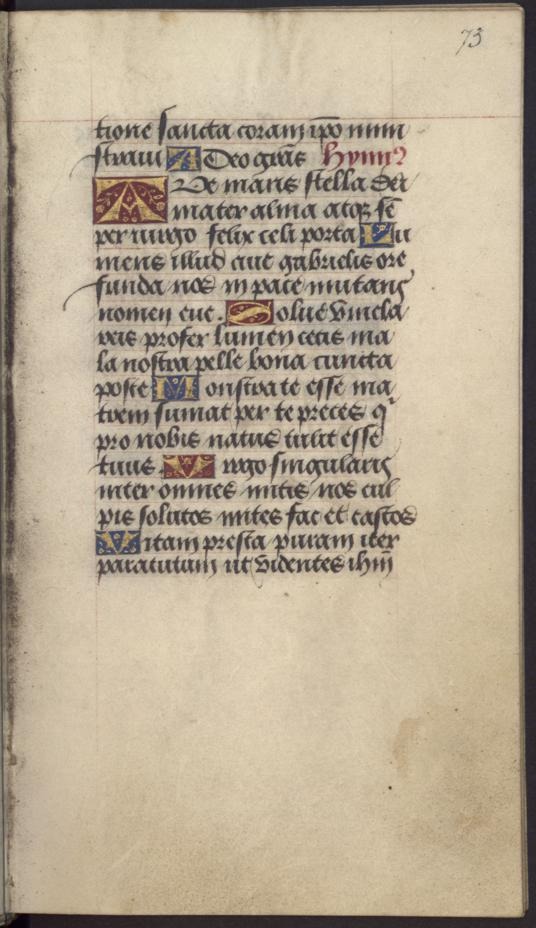 73
tione sancta coram ip̄o mini
straui A Deo grās Hymꝰ
Aue maris stella dei
mater alma atqꝫ sē
per uirgo felix celi porta Su
mens illud aue gabrielis ore
funda nos in pace mutans
nomen eue. Solue vincla
reis profer lumen cecis ma
la nostra pelle bona cuncta
posce Monstra te esse ma
trem sumat per te preces q͛
pro nobis natus tulit esse
tuus. Virgo singularis
inter omnes mitis nos cul
pis solutos mites fac et castos
Vitam presta puram iter
para tutum ut videntes ihm̄